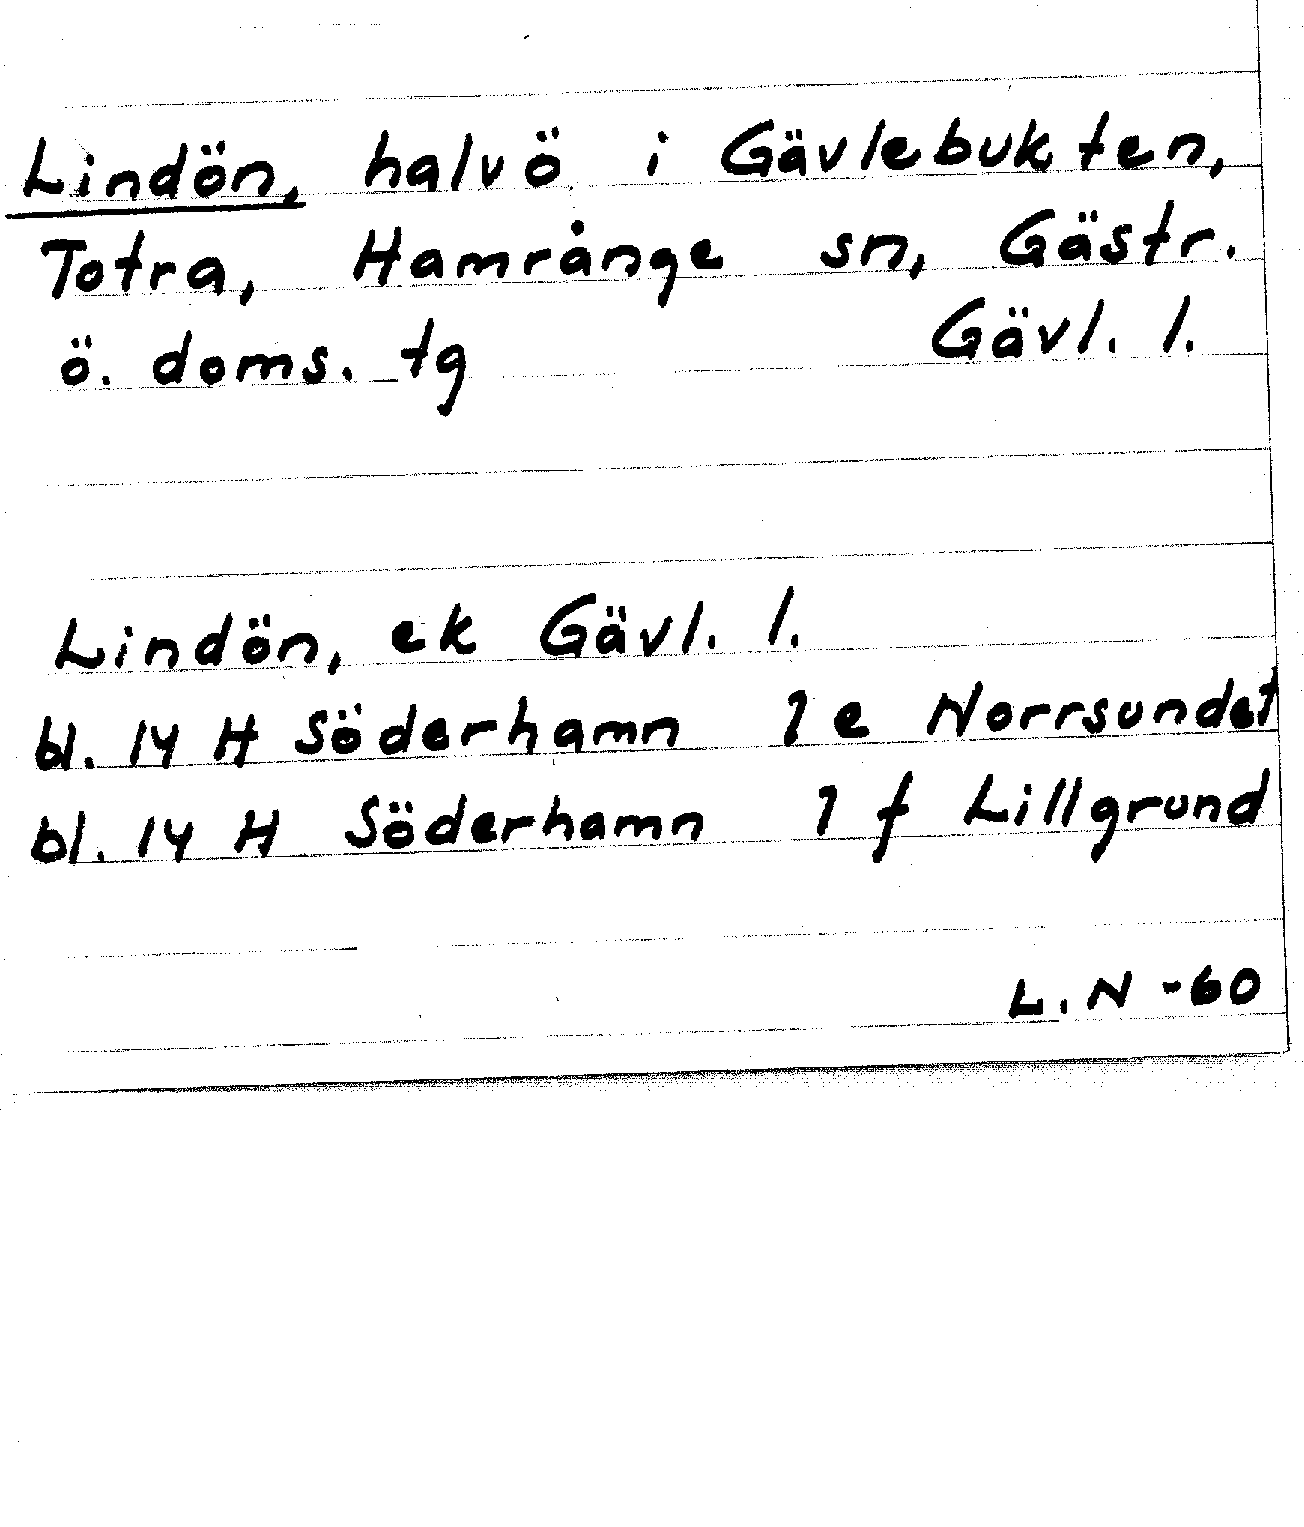 Lindön, halvö i Gävlebukten,
Totra, Hamrånge sn, Gästr.
ö. doms. tg Gävl. l.
Lindön, ek Gävl. l.
bl. 14 H Söderhamn 1 e Norrsundet
bl. 14 H Söderhamn 1 f Lillgrund
L. N -60